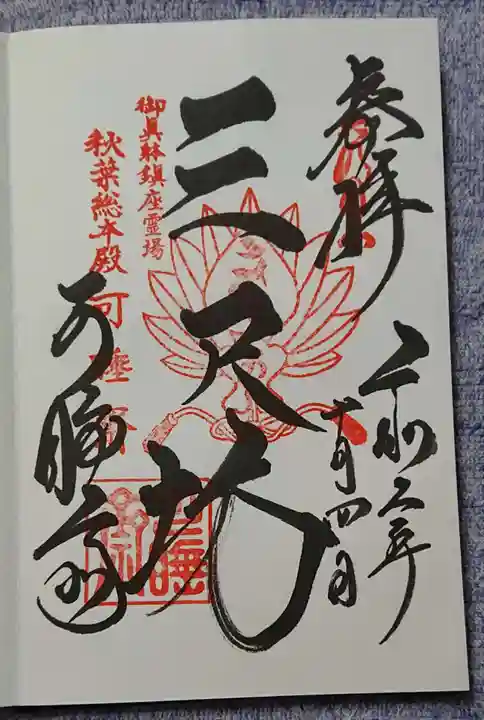 奉拝
令和二年
十月四日
三尺坊
御真躰鎮座霊場
秋葉総本殿可睡斎
可睡斎